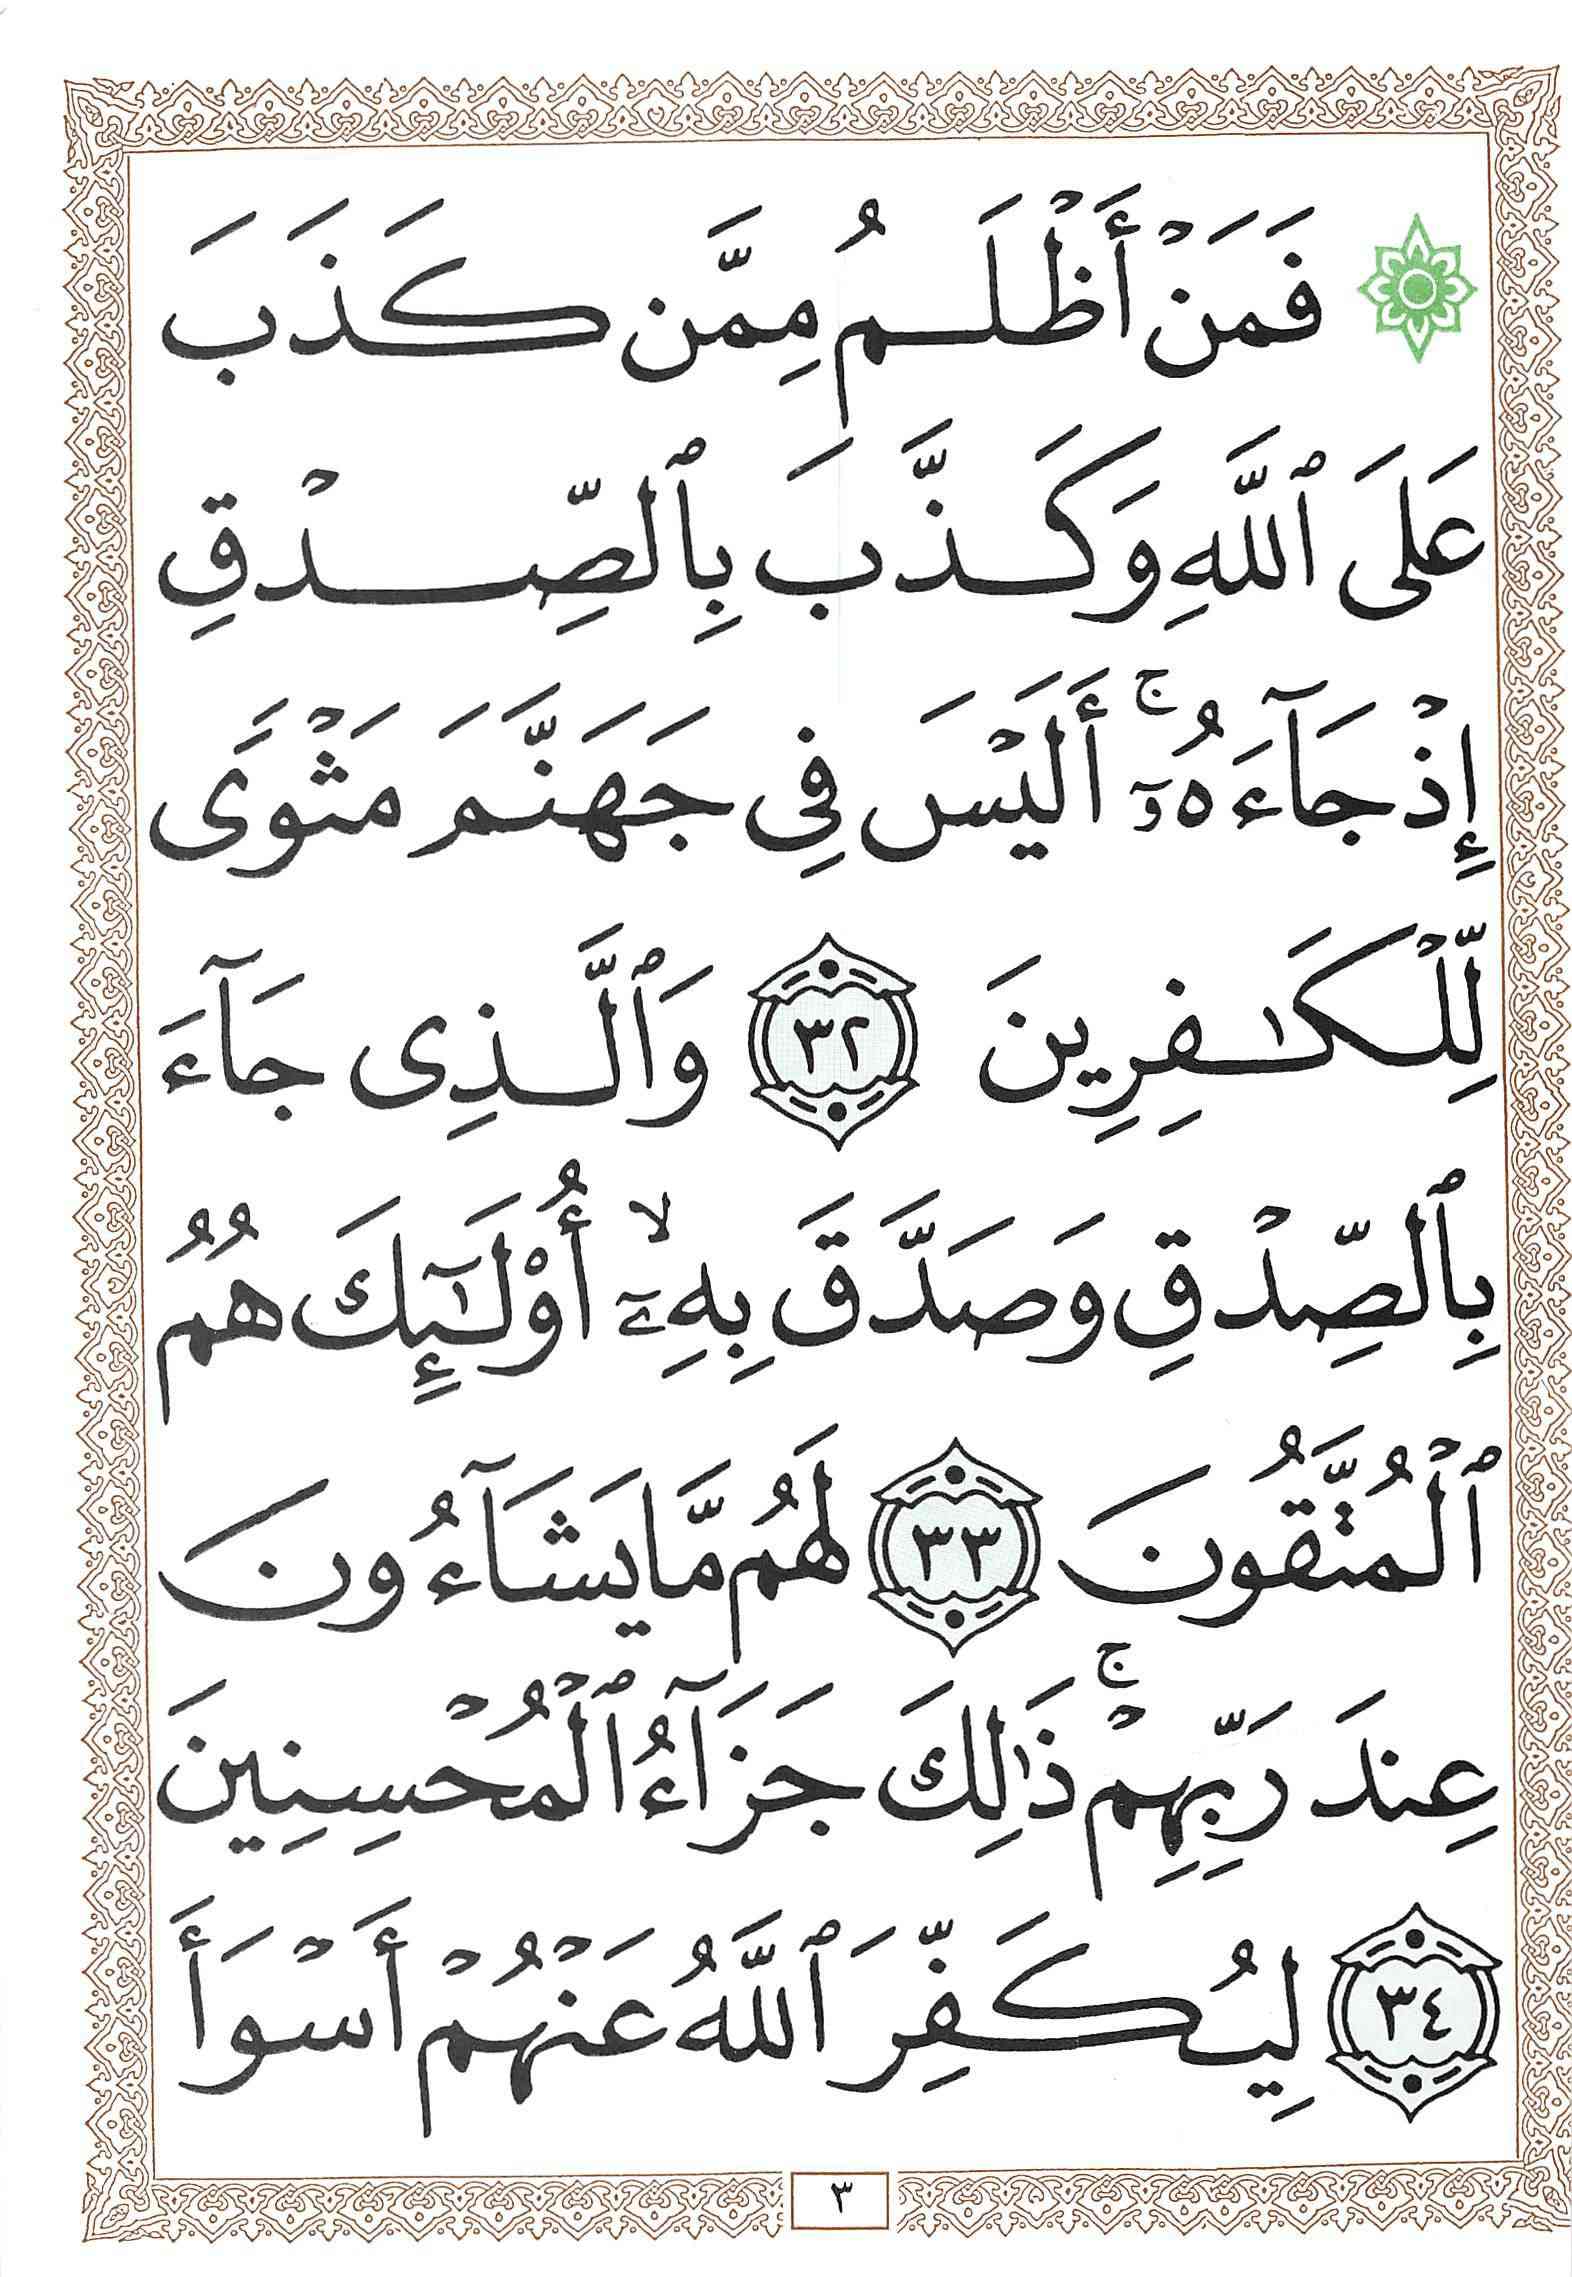 فَمَنْ أَظْلَمُ مِمَّن كَذَبَ
عَلَى ٱللَّهِ وَكَذَّبَ بِٱلصِّدْقِ
إِذْ جَآءَهُۥٓ ۚ أَلَيْسَ فِى جَهَنَّمَ مَثْوًى
لِّلْكَـٰفِرِينَ ٣٢ وَٱلَّذِى جَآءَ
بِٱلصِّدْقِ وَصَدَّقَ بِهِۦٓ ۙ أُو۟لَـٰٓئِكَ هُمُ
ٱلْمُتَّقُونَ ٣٣ لَهُم مَّا يَشَآءُونَ
عِندَ رَبِّهِمْ ۚ ذَٰلِكَ جَزَآءُ ٱلْمُحْسِنِينَ
٣٤ لِيُكَفِّرَ ٱللَّهُ عَنْهُمْ أَسْوَأَ
٣